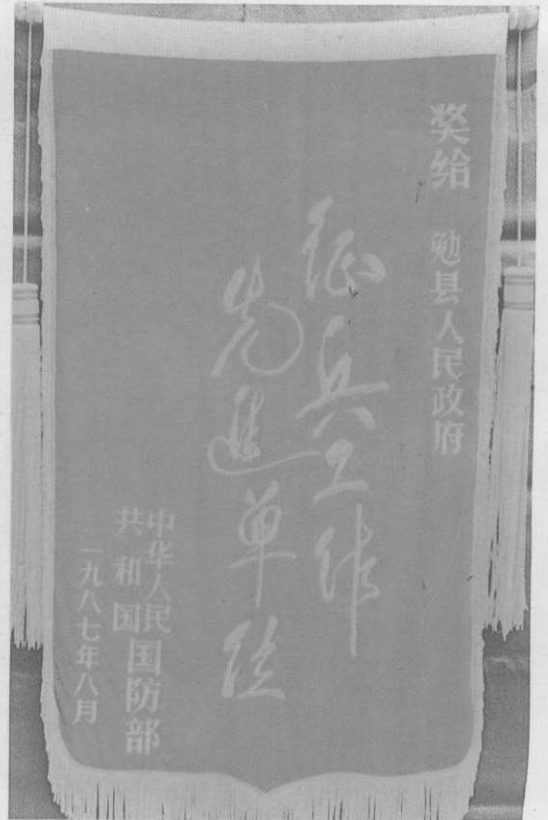 奖给 勉县人民政府
征兵工作
先进单位
中华人民
共和国
国防部
一九八七年八月